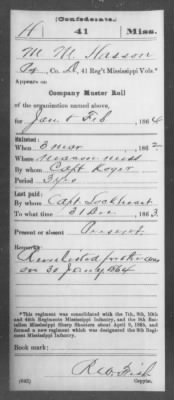 (Confederate.)
H 41 Miss.
M. M. Hasson
Co. D, 41 Reg't Mississippi Vols.*
Appears on
Company Muster Roll
of the organization named above,
for Jan & Feb, 1864
Enlisted:
When 8 Mar, 1862
Where Macon Miss
By whom Capt
Period 3 yrs
Last paid:
By whom Capt Lockheart
To what time 31 Dec, 1863.
Present or absent Present
Remarks:
Reenlisted for the war
on 30 Jany 1864
*This regiment was consolidated with the 7th, 9th, 10th
and 44th Regiments Mississippi Infantry, and the 9th Battalion Mississippi Sharp Shooters about April 9, 1865, and
formed a new regiment which was designated the 9th Regiment Mississippi Infantry.
Book mark:
(642)
Copyist.